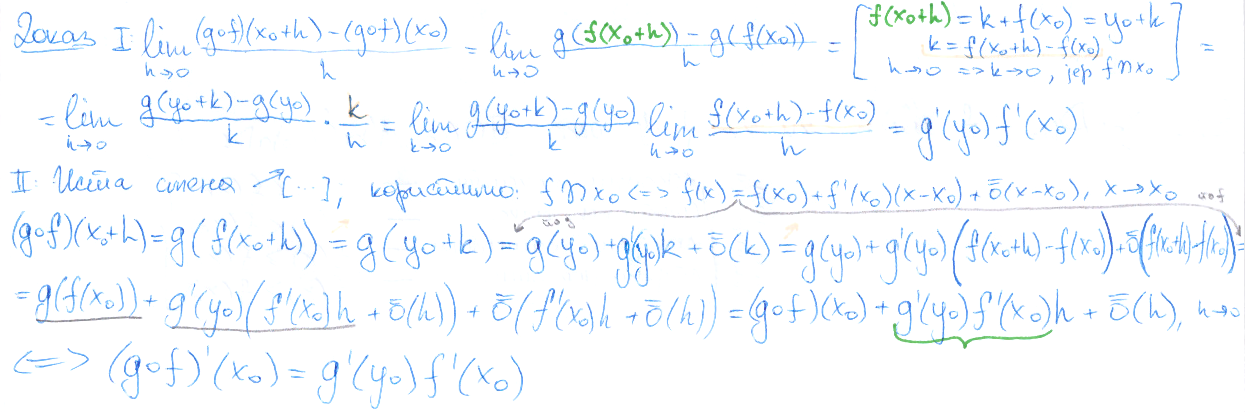 Доказ I lim_{h→0} ((g∘f)(x₀+h) − (g∘f)(x₀))/h = lim_{h→0} (g(f(x₀+h)) − g(f(x₀)))/h = [f(x₀+h) = k + f(x₀) = y₀ + k
k = f(x₀+h) − f(x₀)
h→0 => k→0, јер f П x₀] =
= lim_{h→0} (g(y₀+k) − g(y₀))/k · k/h = lim_{k→0} (g(y₀+k) − g(y₀))/k lim_{h→0} (f(x₀+h) − f(x₀))/h = g'(y₀) f'(x₀)
II: Иста смена ↗[...], користимо: f П x₀ <=> f(x) = f(x₀) + f'(x₀)(x−x₀) + ō(x−x₀), x→x₀
(g∘f)(x₀+h) = g(f(x₀+h)) = g(y₀+k) = g(y₀) + g'(y₀)k + ō(k) = g(y₀) + g'(y₀)(f(x₀+h) − f(x₀)) + ō(f(x₀+h) − f(x₀)) =
= g(f(x₀)) + g'(y₀)(f'(x₀)h + ō(h)) + ō(f'(x₀)h + ō(h)) = (g∘f)(x₀) + g'(y₀)f'(x₀)h + ō(h), h→0
<=> (g∘f)'(x₀) = g'(y₀) f'(x₀)